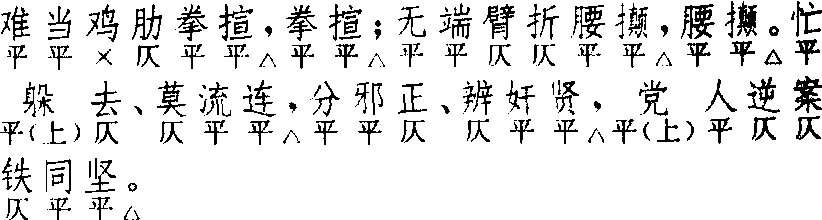 难当鸡肋拳揎，拳揎；无端臂折腰攧，腰攧。忙
平平×仄平平△平平△平平仄仄平平△平平△平
躲去、莫流连，分邪正、辨奸贤，党人逆案
平(上)仄仄平平△平平仄仄平平△平(上)平仄仄
铁同坚。
仄平平△